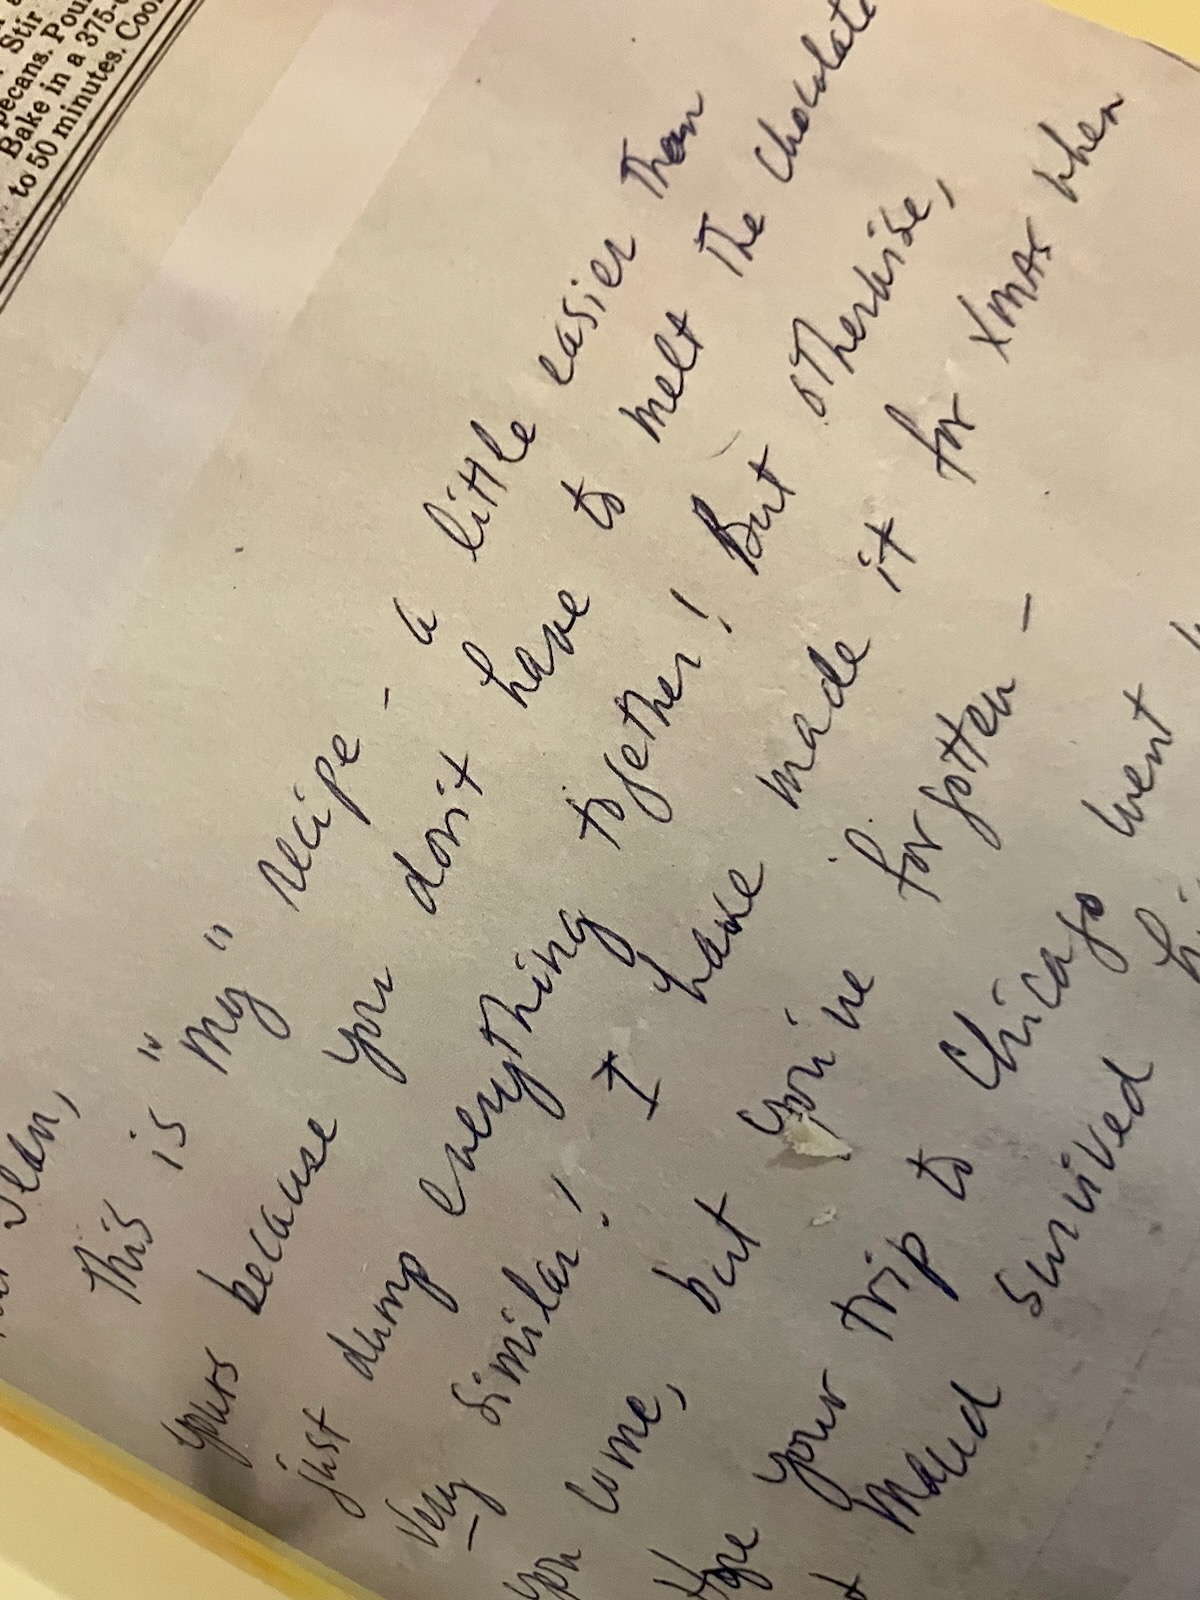 Stir
pecans. Pour
Bake in a 375-
to 50 minutes. Cool
this is "my" recipe - a little easier than
yours because you don't have to melt the chocolate
just dump everything together! But otherwise,
very similar! I have made it for Xmas when
you come, but you've forgotten -
Hope your trip to Chicago went
Maud survived